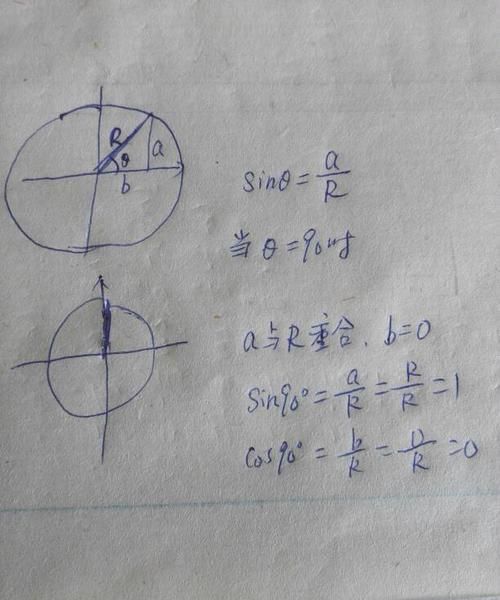 R
θ
a
b
sinθ = a/R
当 θ = 90时
a与R重合, b=0
Sin90° = a/R = R/R = 1
cos90° = b/R = 0/R = 0